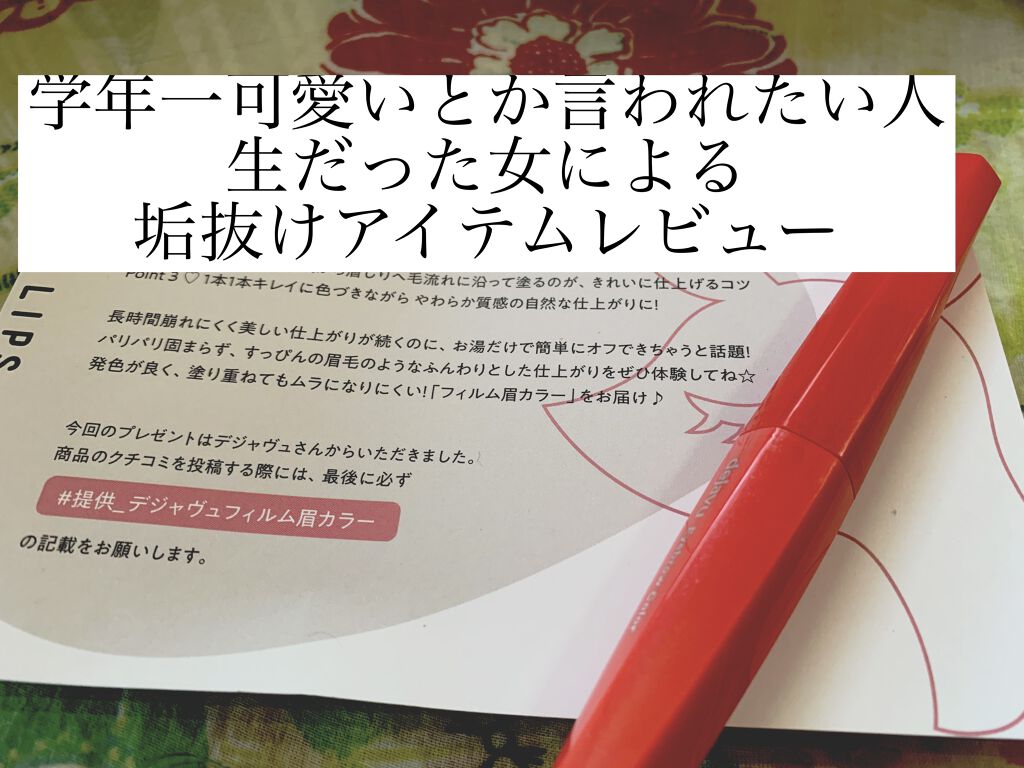 学年一可愛いとか言われたい人
生だった女による
垢抜けアイテムレビュー
眉じりへ毛流れに沿って塗るのが、きれいに仕上げるコツ
Point 3 ♡ 1本1本キレイに色づきながら やわらか質感の自然な仕上がりに!
長時間崩れにくく美しい仕上がりが続くのに、お湯だけで簡単にオフできちゃうと話題!
パリパリ固まらず、すっぴんの眉毛のようなふんわりとした仕上がりをぜひ体験してね☆
発色が良く、塗り重ねてもムラになりにくい!「フィルム眉カラー」をお届け♪
今回のプレゼントはデジャヴュさんからいただきました。
商品のクチコミを投稿する際には、最後に必ず
#提供_デジャヴュフィルム眉カラー
の記載をお願いします。
LIPS
dejavu Eyebrow Color